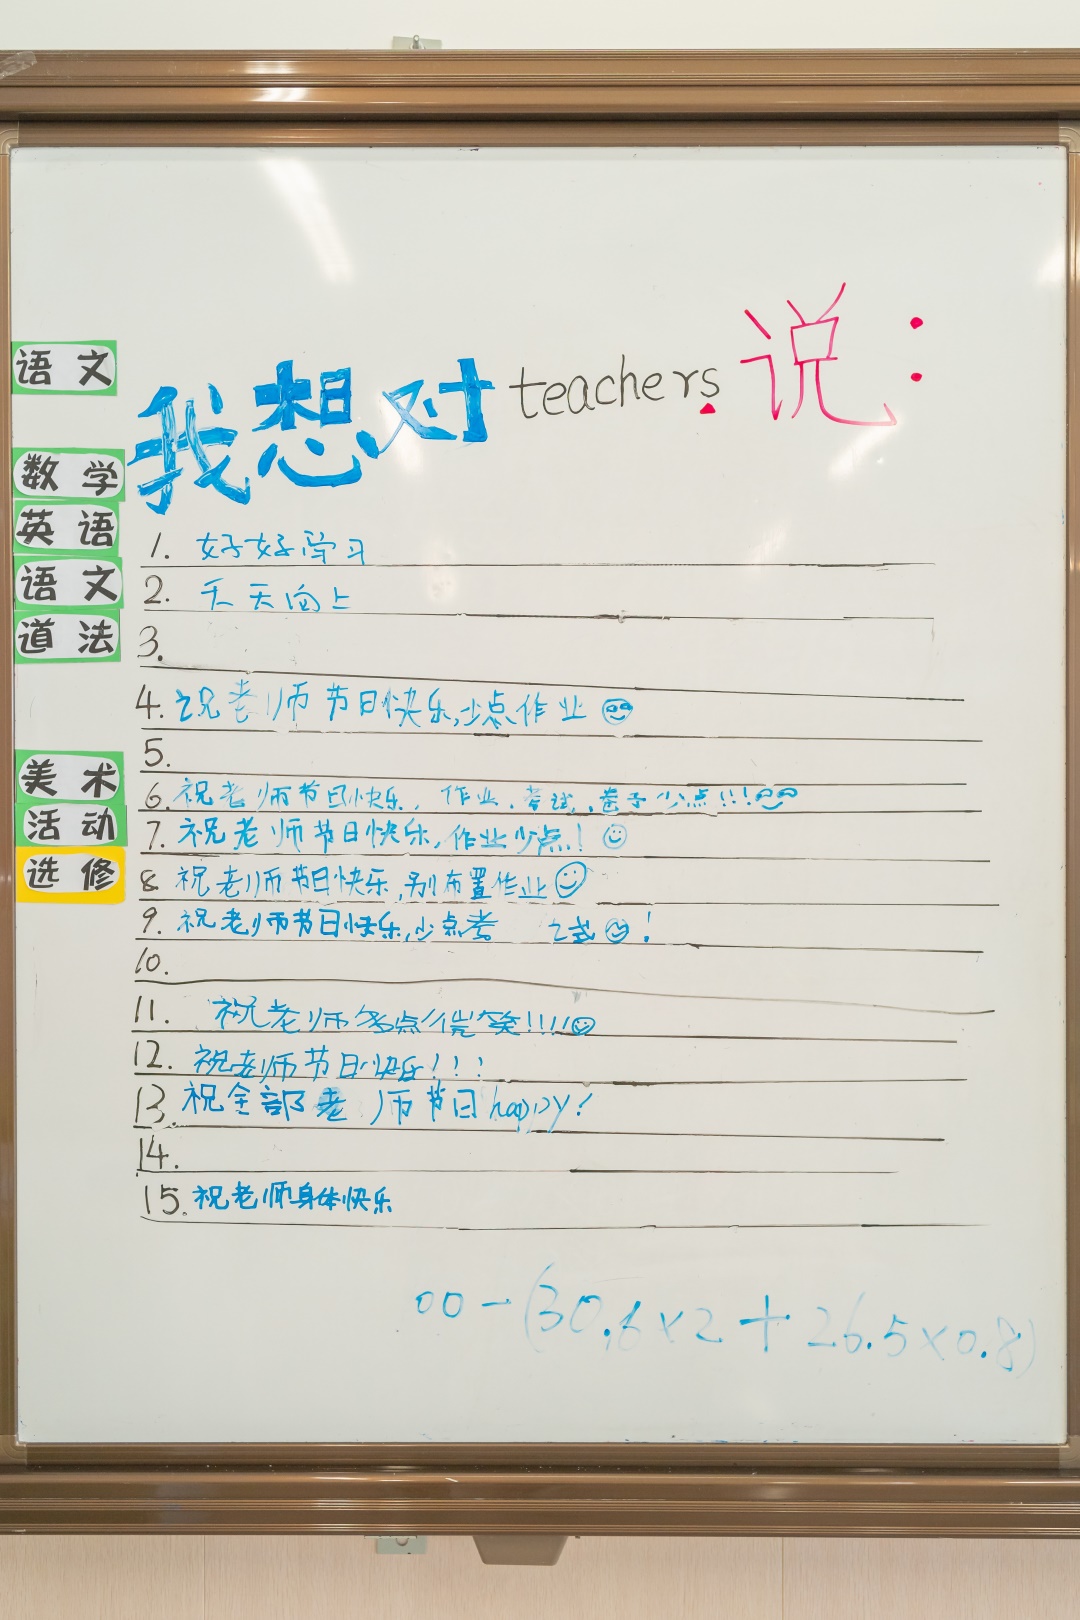 语文
我想对teachers说：
数学
英语
1. 好好学习
语文
2. 天天向上
道法
3.
4. 祝老师节日快乐,少点作业
5.
美术
6. 祝老师节日快乐，作业、考试、卷子少点!!!
活动
7. 祝老师节日快乐,作业少点!
选修
8 祝老师节日快乐,别布置作业
9. 祝老师节日快乐,少点考 试!
10.
11. 祝老师多点微笑!!!!
12. 祝老师节日快乐!!!
13. 祝全部老师节日happy!
14.
15. 祝老师身体快乐
00-(30.6×2+26.5×0.8)